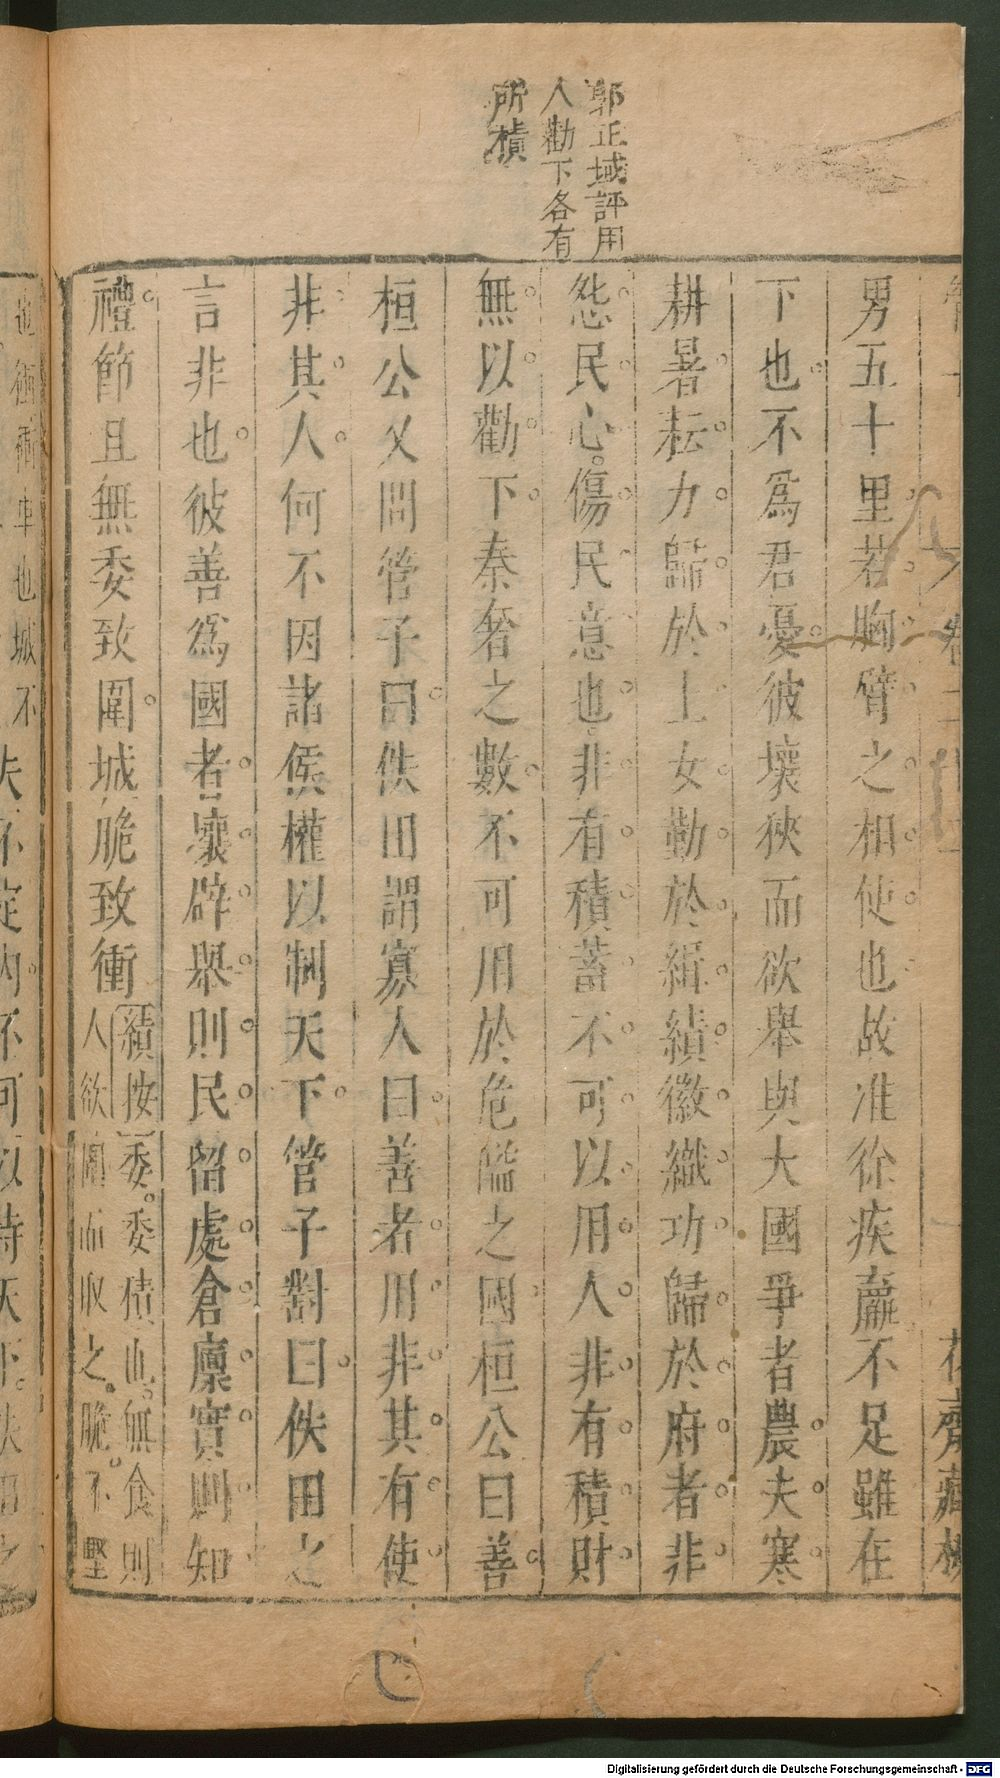 郭正域評用
人勸下各有
所積
男五十里若胸臂之相使也故准徐疾羸不足雖在
下也不爲君憂彼壤狹而欲舉與大國爭者農夫寒
耕暑耘力歸於上女勤於緝績徽織功歸於府者非
怨民心傷民意也非有積蓄不可以用人非有積財
無以勸下秦奢之數不可用於危隘之國桓公曰善
桓公又問管子曰佚田謂寡人曰善者用非其有使
非其人何不因諸侯權以制天下管子對曰佚田之
言非也彼善爲國者壤辟舉則民留處倉廩實則知
禮節且無委致圍城脆致衝
績按委委積也無食則
人欲圍而取之脆不堅
Digitalisierung gefördert durch die Deutsche Forschungsgemeinschaft - DFG